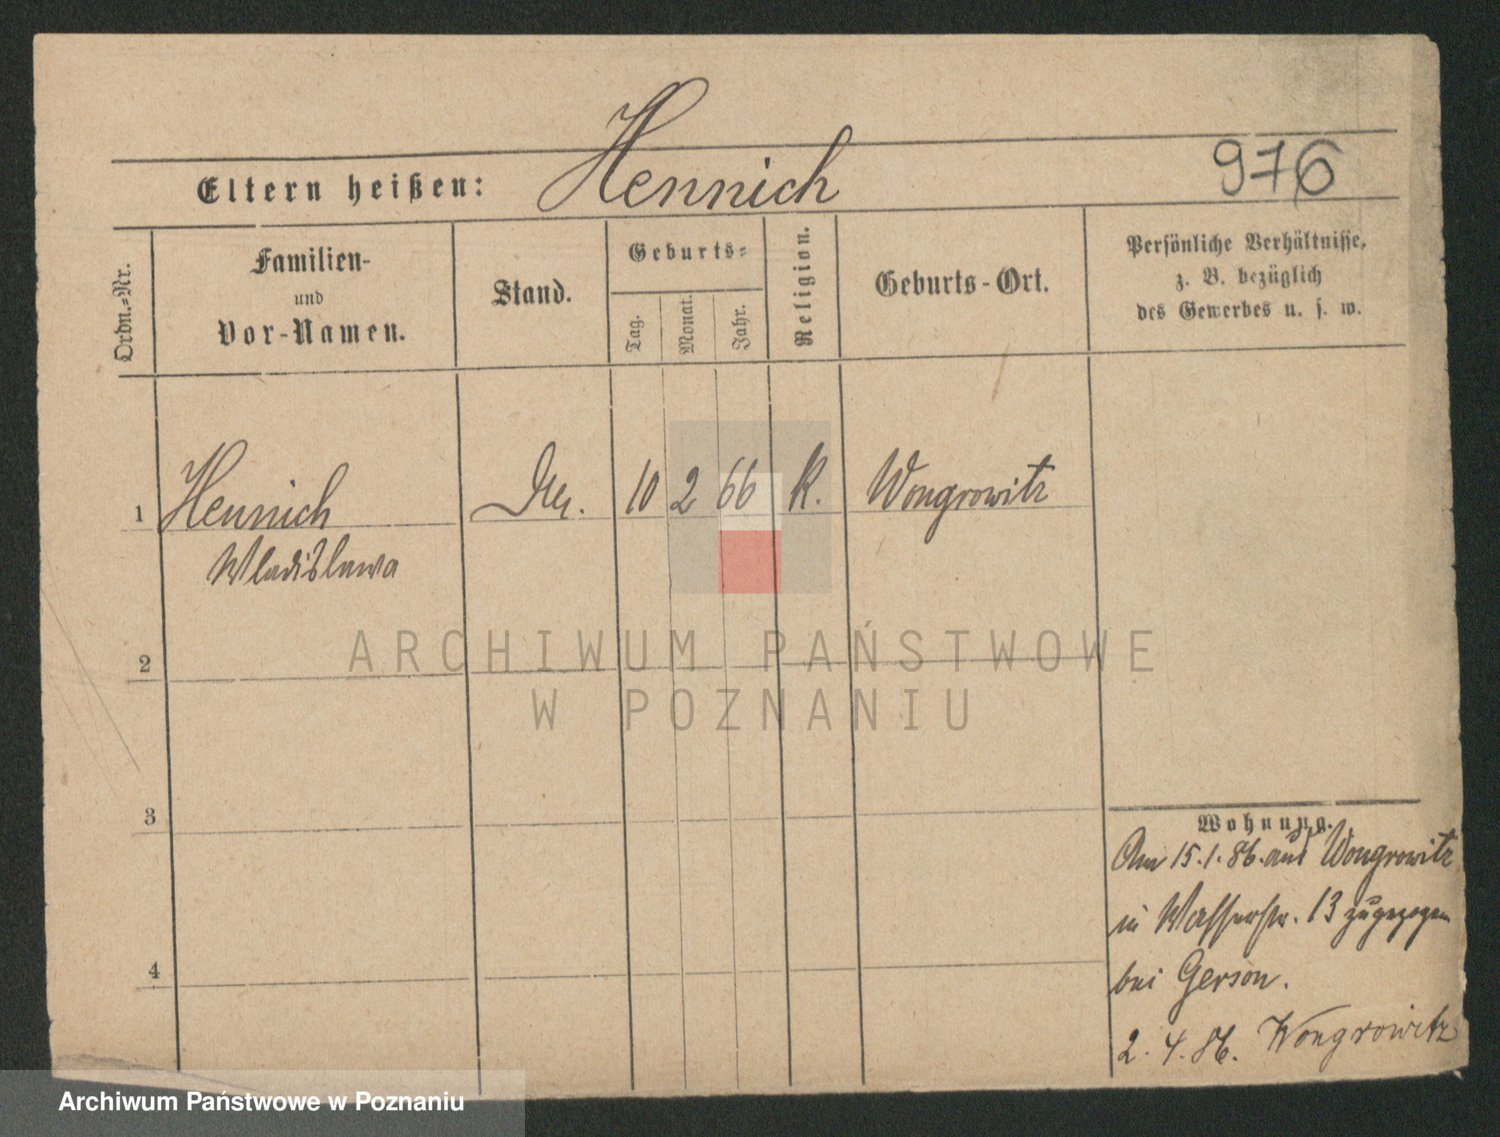 976
Eltern heißen: Hennich
Ordn.-Nr.
Familien-
und
Vor-Namen.
Stand.
Geburts-
Tag.
Monat.
Jahr.
Religion.
Geburts-Ort.
Persönliche Verhältnisse,
z. B. bezüglich
des Gewerbes u. s. w.
1 Hennich 10 2 66 K. Wongrowitz
Wladislawa
ARCHIWUM PAŃSTWOWE
W POZNANIU
2
3
4
Wohnung.
Am 15.1.86. aus Wongrowitz
in Wasserstr. 13 zugezogen
bei Gerson.
2.4.86. Wongrowitz
Archiwum Państwowe w Poznaniu